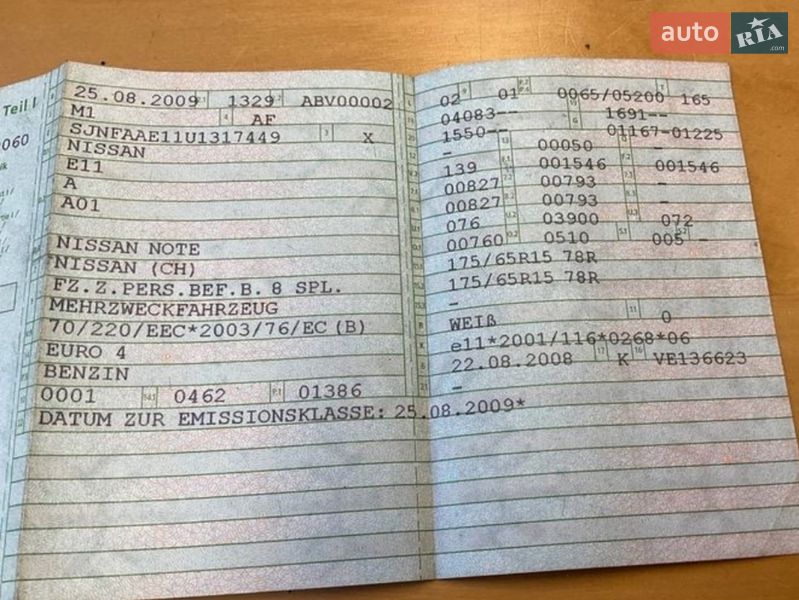 auto RIA .com
Teil I
0060
25.08.2009 1329 ABV00002
M1 AF
SJNFAAE11U1317449 X
NISSAN
E11
A
A01
NISSAN NOTE
NISSAN (CH)
FZ.Z.PERS.BEF.B. 8 SPL.
MEHRZWECKFAHRZEUG
70/220/EEC*2003/76/EC (B)
EURO 4
BENZIN
0001 0462 01386
DATUM ZUR EMISSIONSKLASSE: 25.08.2009*
02 01 0065/05200 165
04083-- 1691--
1550-- 01167-01225
- 00050 -
139 001546 001546
00827 00793 -
00827 00793 -
076 03900 072
00760 0510 005 -
175/65R15 78R
175/65R15 78R
-
WEIß 0
e11*2001/116*0268*06
22.08.2008 K VE136623
-